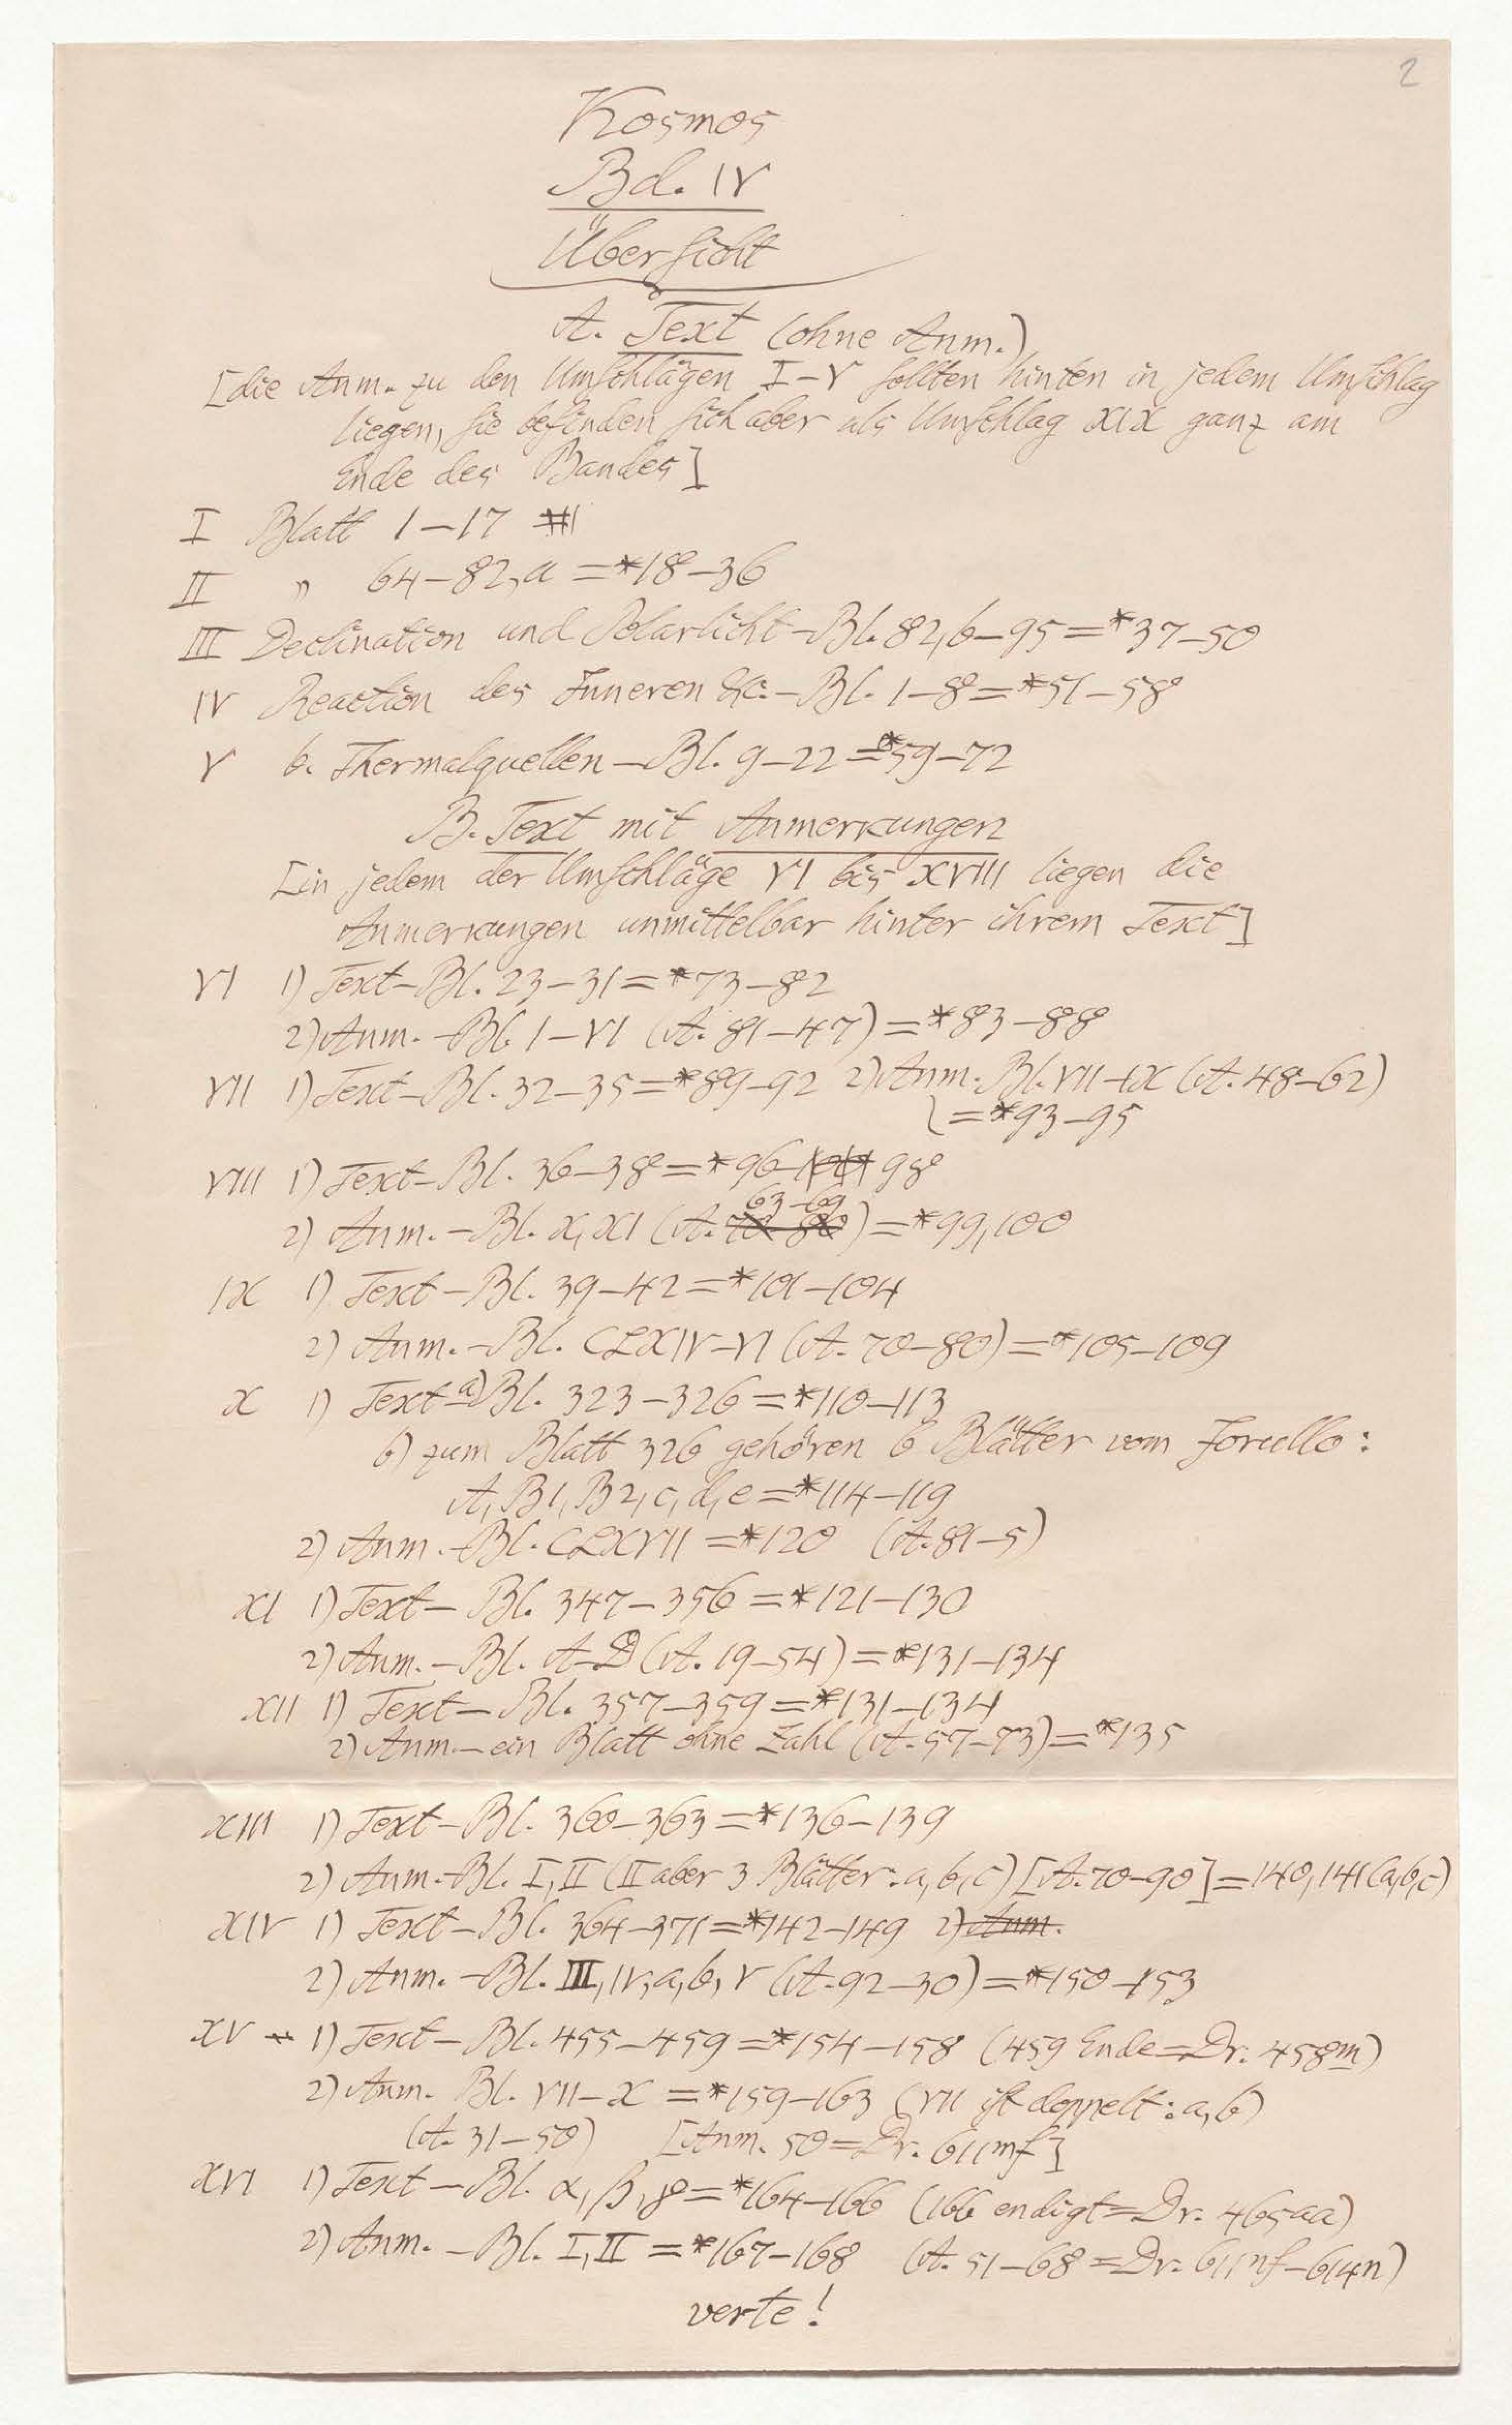 2
Kosmos
Bd. IV
Übersicht
A. Text (ohne Anm.)
[die Anm. zu den Umschlägen I–V sollten hinten in jedem Umschlag
liegen, sie befinden sich aber als Umschlag XIX ganz am
Ende des Bandes]
I Blatt 1–17
II " 64–82,a = *18–36
III Declination und Polarlicht – Bl. 82,b–95 = *37–50
IV Reaction des Inneren &c. – Bl. 1–8 = *51–58
V b. Thermalquellen – Bl. 9–22 = *59–72
B. Text mit Anmerkungen
[in jedem der Umschläge VI bis XVIII liegen die
Anmerkungen unmittelbar hinter ihrem Text]
VI 1) Text – Bl. 23–31 = *73–82
2) Anm. – Bl. I–VI (A. 81–47) = *83–88
VII 1) Text – Bl. 32–35 = *89–92 2) Anm. Bl. VII–IX (A. 48–62)
= *93–95
VIII 1) Text – Bl. 36–38 = *96– 98
63–69
2) Anm. – Bl. X, XI (A. 70–80) = *99,100
IX 1) Text – Bl. 39–42 = *101–104
2) Anm. – Bl. CLXIV–VI (A. 70–80) = *105–109
X 1) Text – a) Bl. 323–326 = *110–113
b) zum Blatt 326 gehören 6 Blätter vom Jorullo:
A, B1, B2, c, d, e = *114–119
2) Anm. – Bl. CLXVII = *120 (A. 81–5)
XI 1) Text – Bl. 347–356 = *121–130
2) Anm. – Bl. A–D (A. 19–54) = *131–134
XII 1) Text – Bl. 357–359 = *131–134
2) Anm. – ein Blatt ohne Zahl (A. 57–73) = *135
XIII 1) Text – Bl. 360–363 = *136–139
2) Anm. – Bl. I, II (II aber 3 Blätter: a, b, c) [A. 70–90] = 140, 141 (a,b,c)
XIV 1) Text – Bl. 364–371 = *142–149 2) Anm.
2) Anm. – Bl. III, IV, a, b, V (A. 92–30) = *150–153
XV 1) Text – Bl. 455–459 = *154–158 (459 Ende = Dr. 458m)
2) Anm. Bl. VII–X = *159–163 (VII ist doppelt: a, b)
(A. 31–50) [Anm. 50 = Dr. 611mf]
XVI 1) Text – Bl. α, β, γ = *164–166 (166 endigt = Dr. 465aa)
2) Anm. – Bl. I, II = *167–168 (A. 51–68 = Dr. 611nf–614n)
verte!